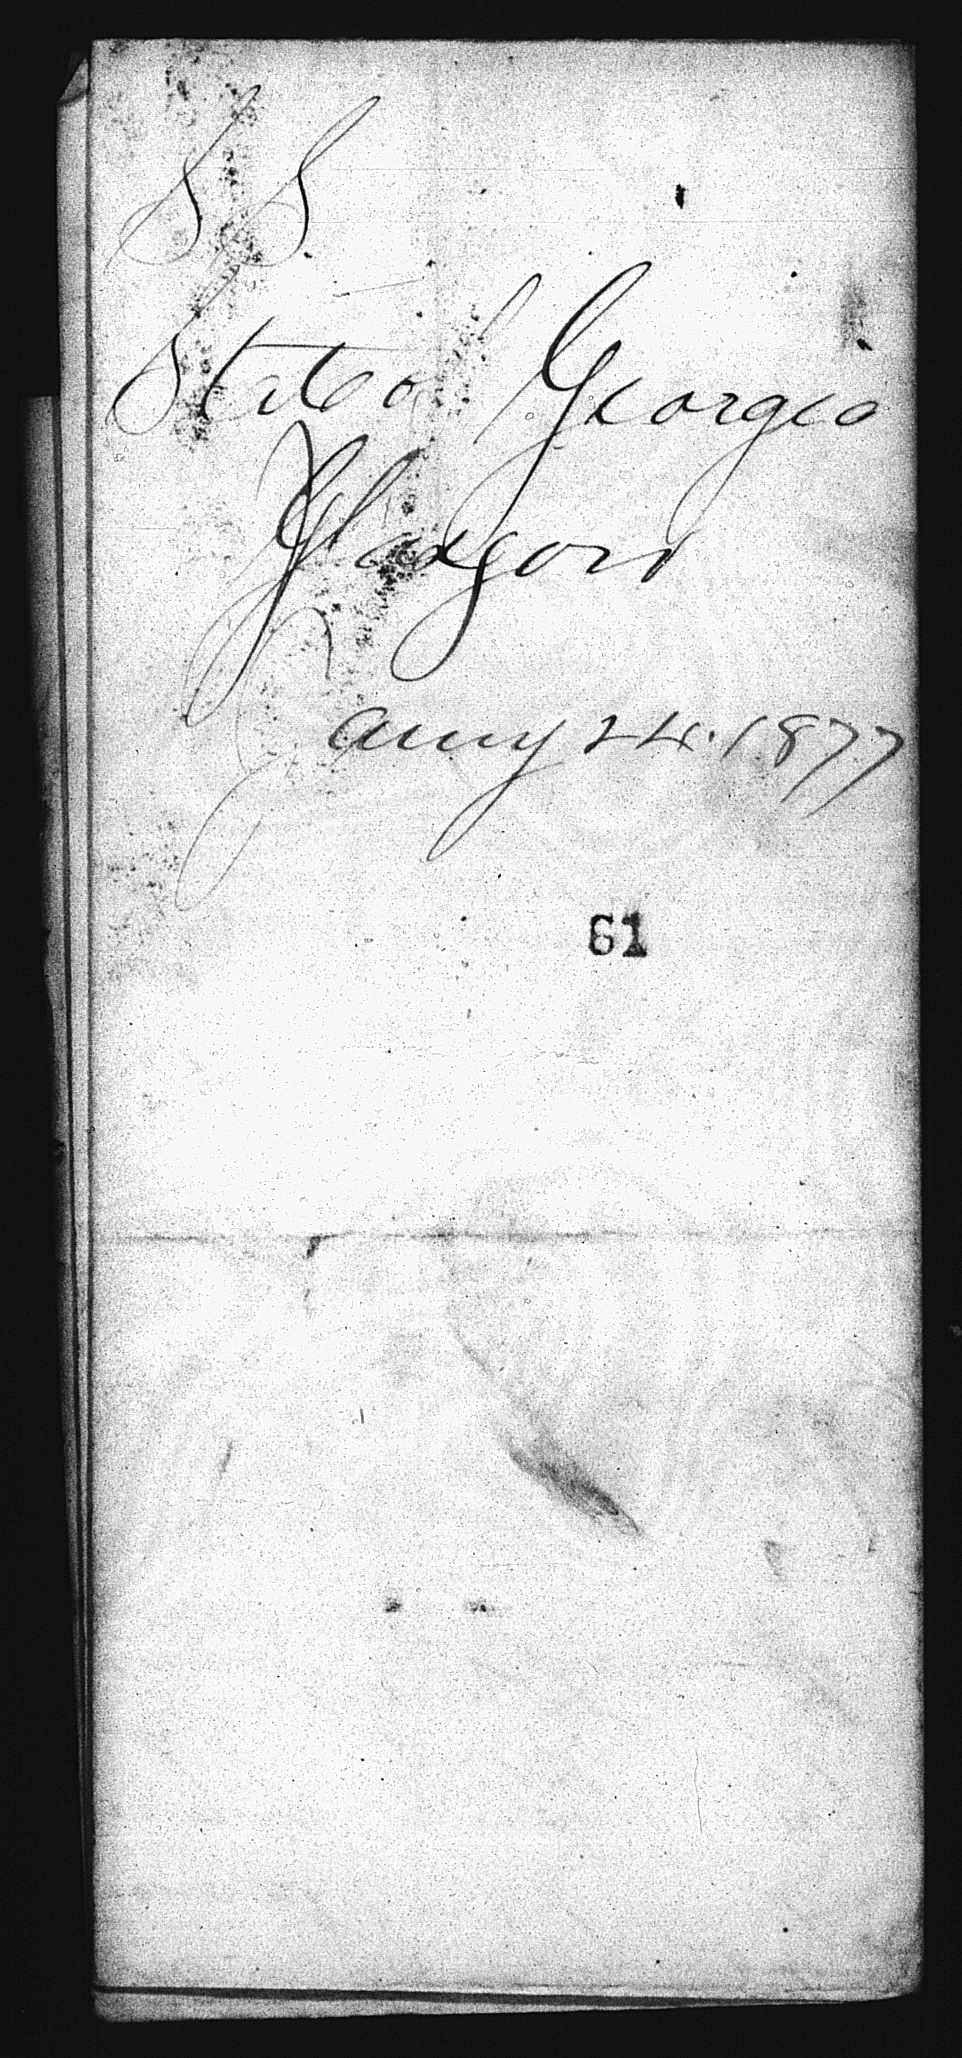 S.S.
State of Georgia
Glasgow
Jany 24. 1877
61